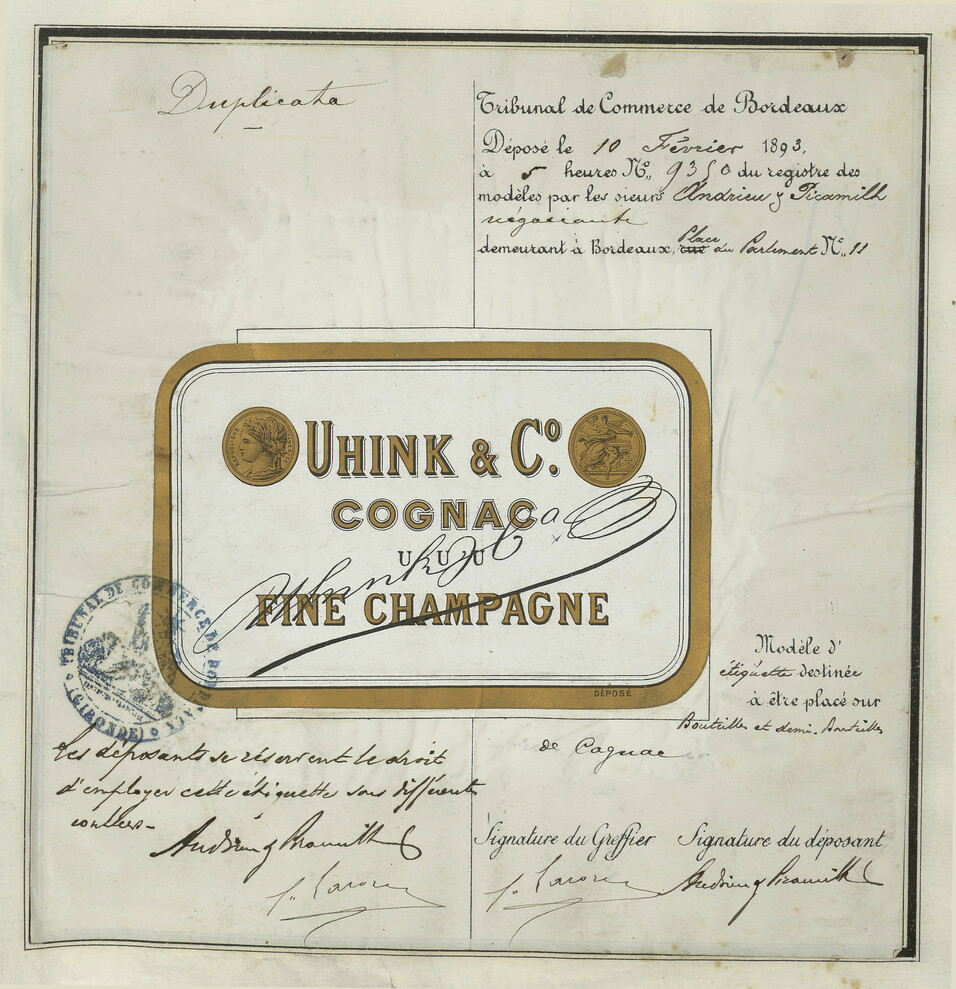 Duplicata
Tribunal de Commerce de Bordeaux
Déposé le 10 Février 1893,
à 5 heures No,, 9350 du registre des
modèles par les sieurs Andrieu y Picamilh
négociants
demeurant à Bordeaux, rue Place du Parlement No,, 11
RÉPUBLIQUE
UHINK & Co.
COGNAC
U U U
Uhink y Ca
FINE CHAMPAGNE
DÉPOSÉ
TRIBUNAL DE COMMERCE DE BORDEAUX
(GIRONDE)
Modèle d'
étiquette destinée
à être placé sur
Bouteilles et demi-Bouteilles
de Cognac
Les déposants se réservent le droit
d'employer cette étiquette sous différentes
couleurs-
Andrieu y Picamilh
Signature du Greffier Signature du déposant
Andrieu y Picamilh